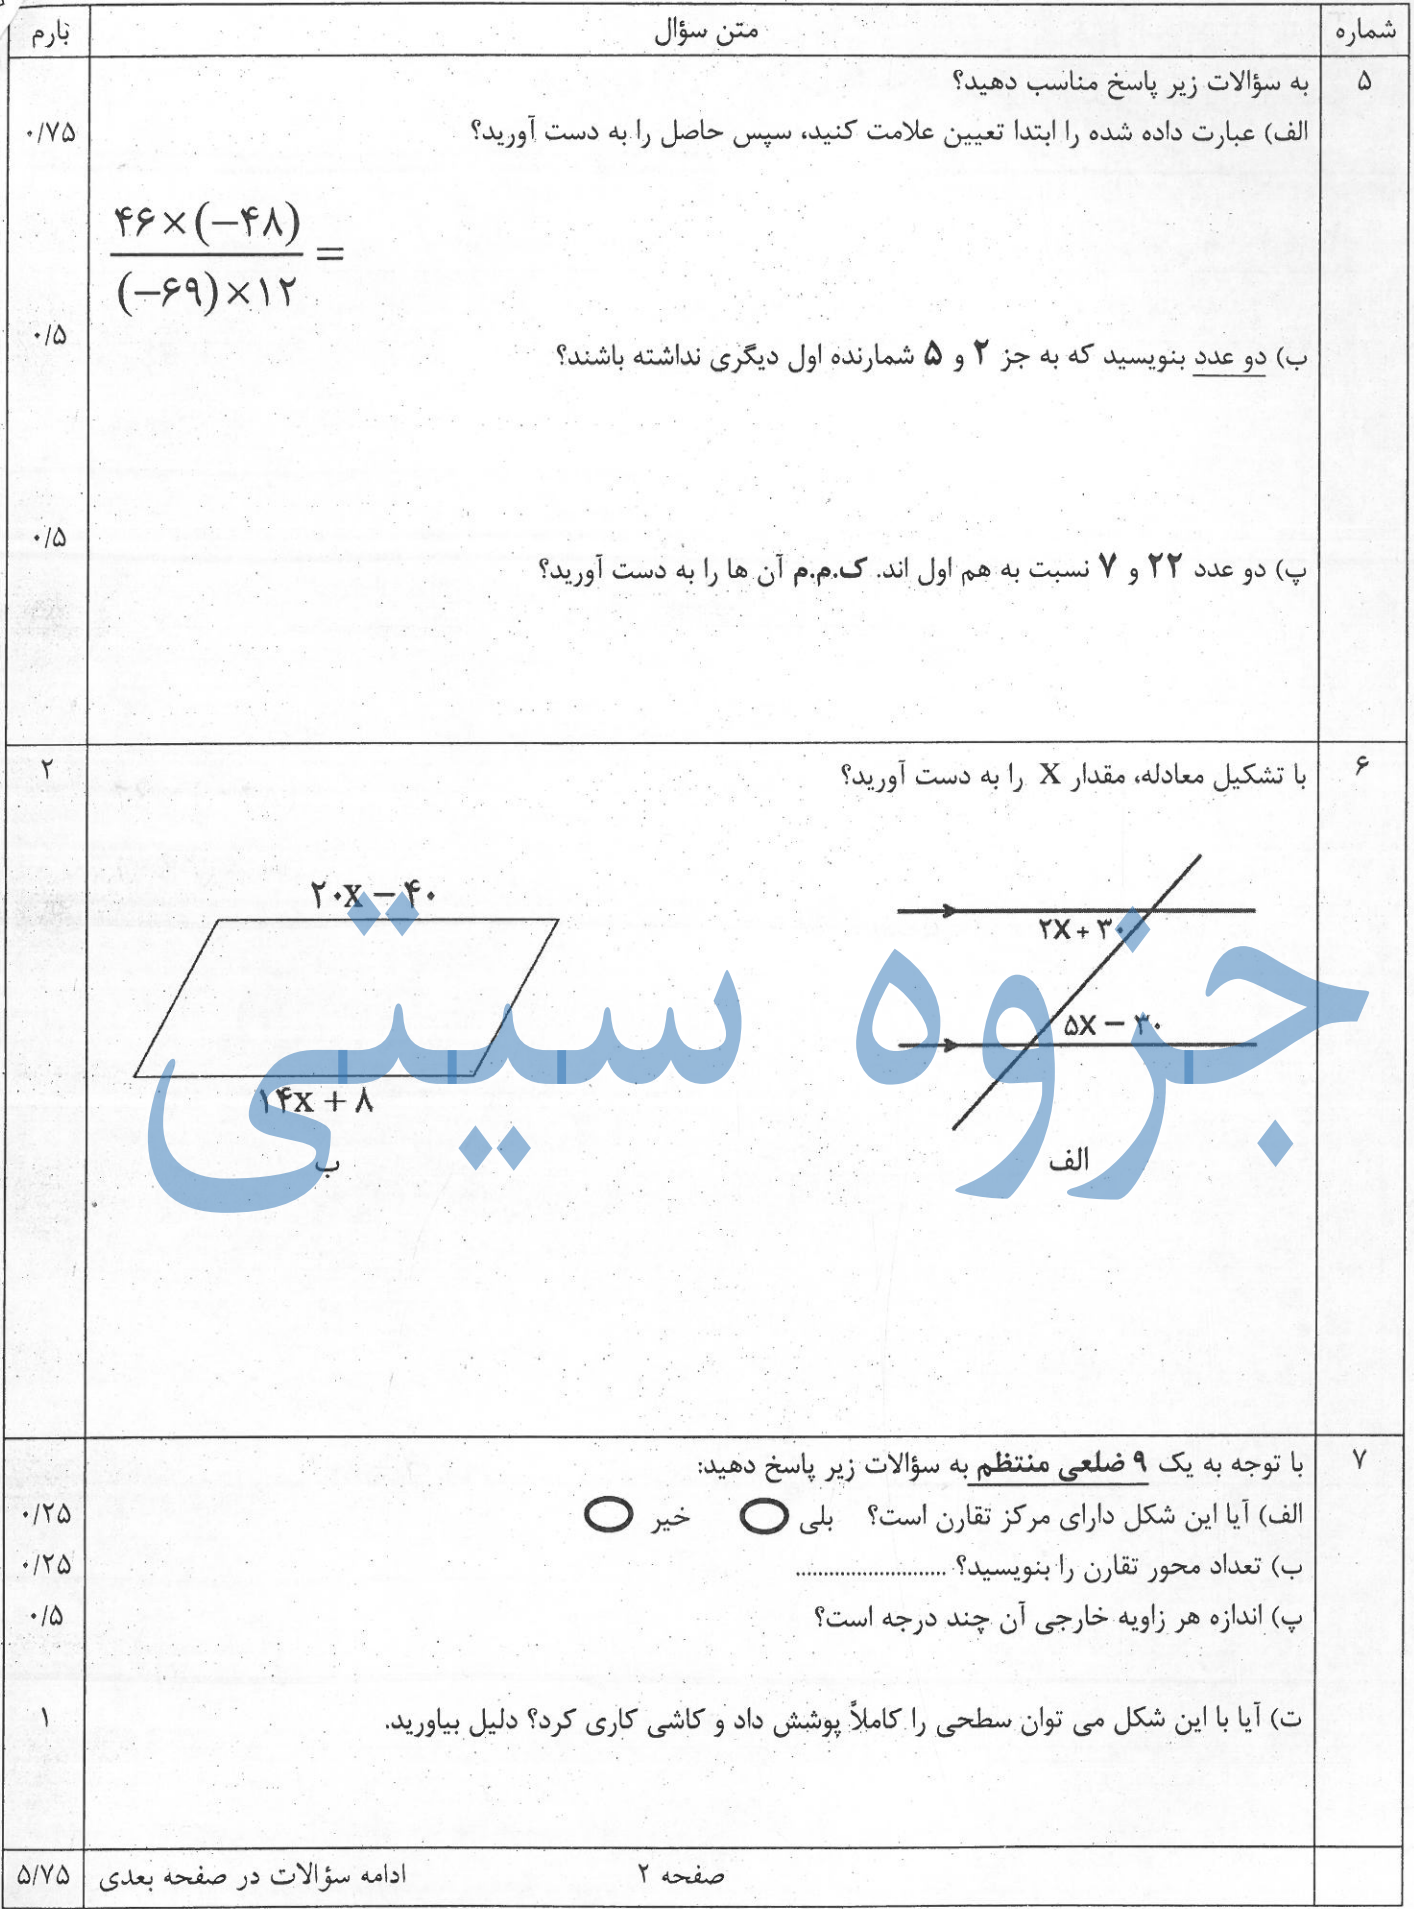 شماره متن سؤال بارم
۵ به سؤالات زیر پاسخ مناسب دهید؟
الف) عبارت داده شده را ابتدا تعیین علامت کنید، سپس حاصل را به دست آورید؟ ۰/۷۵
۴۶×(−۴۸)
=
(−۶۹)×۱۲
ب) دو عدد بنویسید که به جز ۲ و ۵ شمارنده اول دیگری نداشته باشند؟ ۰/۵
پ) دو عدد ۲۲ و ۷ نسبت به هم اول اند. ک.م.م آن ها را به دست آورید؟ ۰/۵
۶ با تشکیل معادله، مقدار X را به دست آورید؟ ۲
۲X + ۳۰
۵X − ۳۰
الف
۲۰X − ۴۰
۱۴X + ۸
ب
جزوه سیتی
۷ با توجه به یک ۹ ضلعی منتظم به سؤالات زیر پاسخ دهید:
الف) آیا این شکل دارای مرکز تقارن است؟ بلی خیر ۰/۲۵
ب) تعداد محور تقارن را بنویسید؟ ........................... ۰/۲۵
پ) اندازه هر زاویه خارجی آن چند درجه است؟ ۰/۵
ت) آیا با این شکل می توان سطحی را کاملاً پوشش داد و کاشی کاری کرد؟ دلیل بیاورید. ۱
صفحه ۲ ادامه سؤالات در صفحه بعدی ۵/۷۵